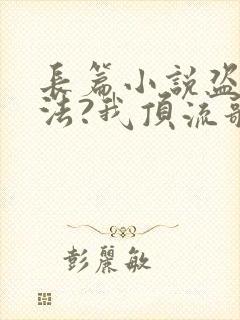 長篇小說盜
法?我頂流歌
彭麗敏